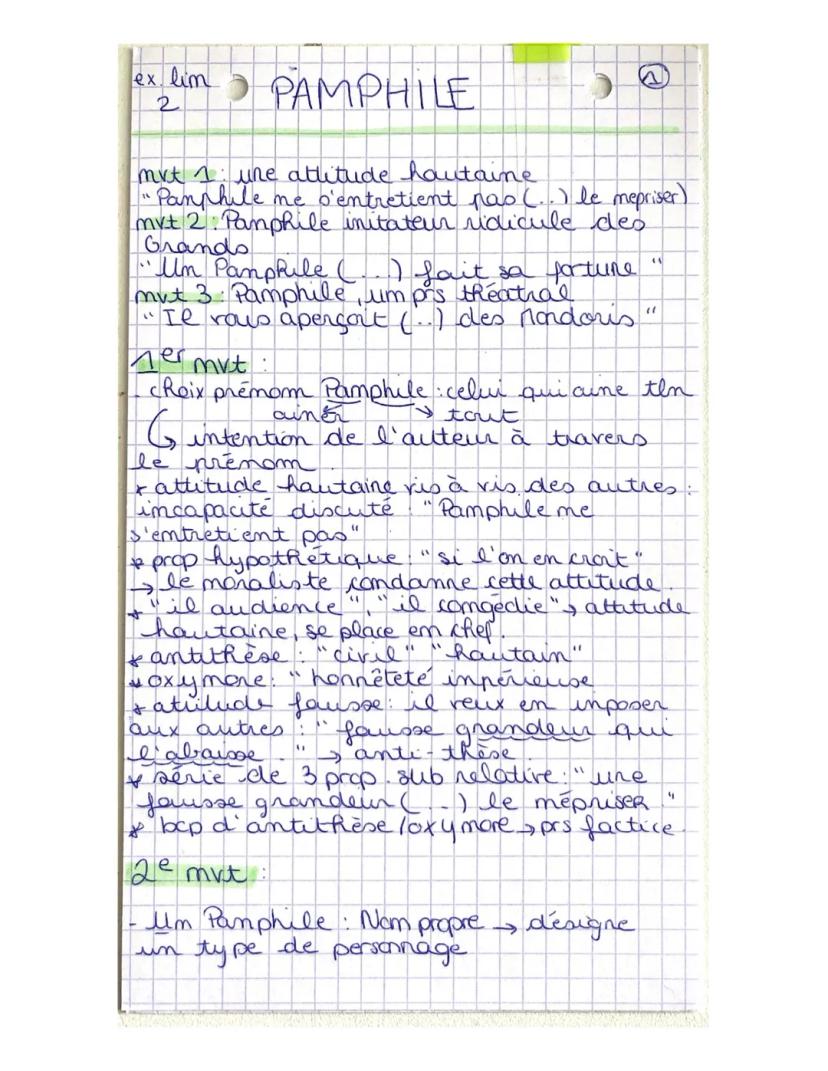 ex. lim 2
PAMPHILE
1
mvt 1: une attitude hautaine
"Pamphile ne s'entretient pas (..) le mepriser)
mvt 2: Pamphile imitateur ridicule des
Grands
"Un Pamphile (...) fait sa fortune"
mvt 3: Pamphile, um prs théatral
"Il vous aperçoit (..) des Mondoris"
1er mvt :
. choix prénom Pamphile : celui qui aime tlm
aimer → tout
↳ intention de l'auteur à travers
le prénom
* attitude hautaine vis à vis des autres :
incapacité discuté : "Pamphile ne
s'entretient pas"
* prop hypothétique : "si l'on en croit"
→ le moraliste condamne cette attitude.
* "il audience", "il congédie" → attitude
hautaine, se place en chef.
* antithèse : "civil" "hautain"
* oxymore : "honnêteté impérieuse
* attitude fausse : il veux en imposer
aux autres : "fausse grandeur qui
l'abaisse." → anti-thèse
* série de 3 prop. sub relative : "une
fausse grandeur (...) le mépriser."
* bcp d'antithèse / oxymore → prs factice
2e mvt :
- Um Pamphile : Nom propre → désigne
un type de personnage